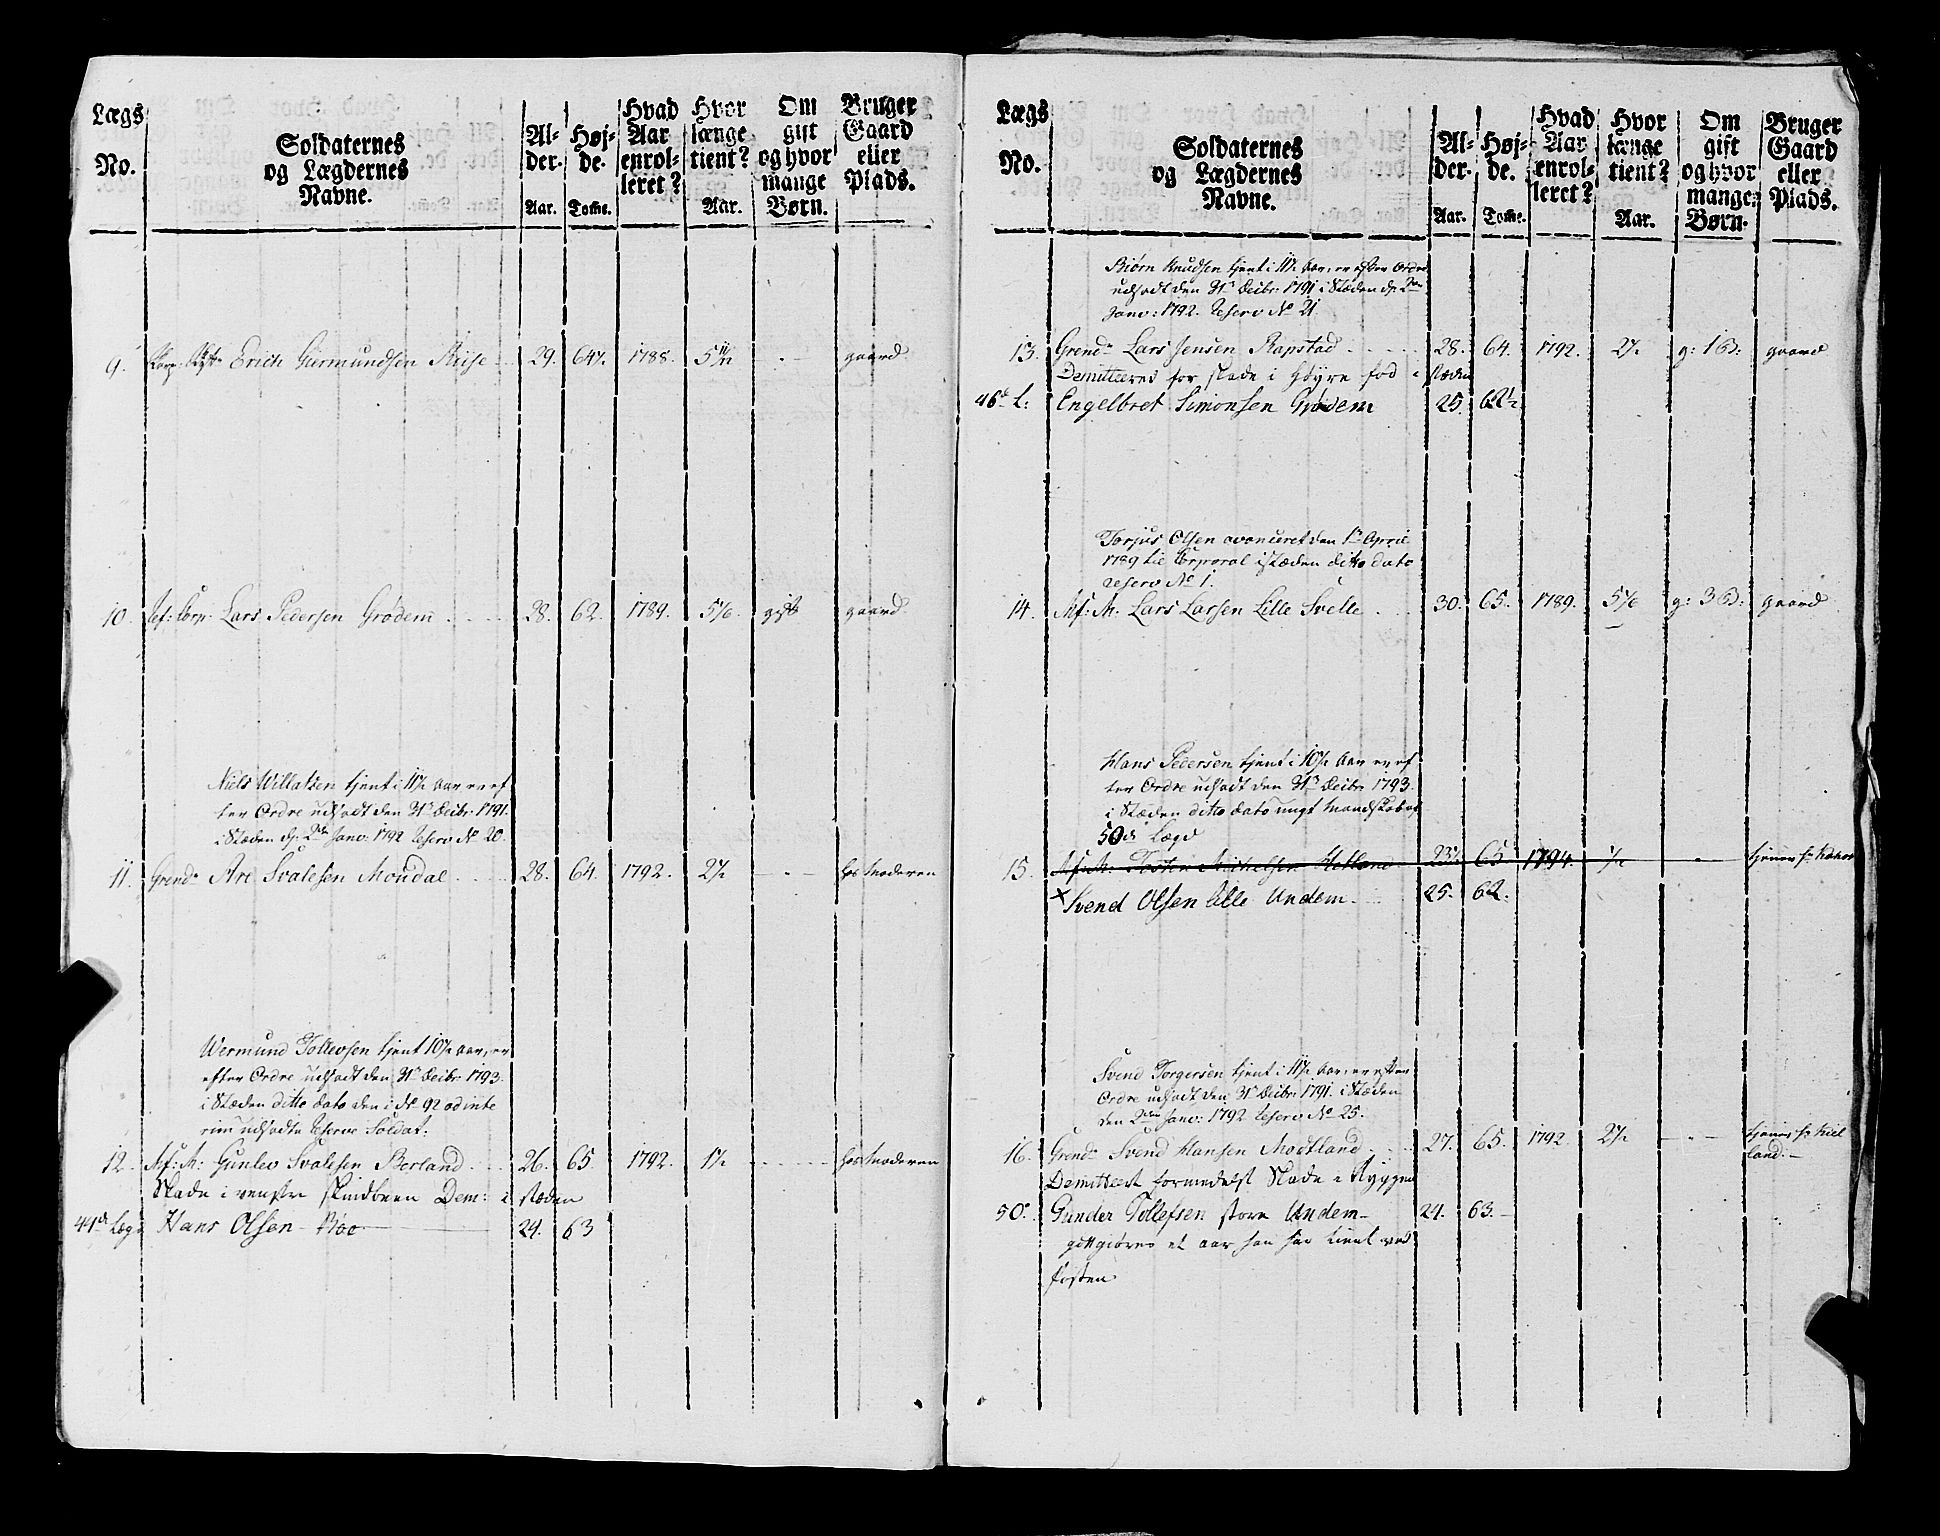 Lægs No. | Soldaternes og Lægdernes Navne. | Alder. Aar. | Højde. Tomme. | Hvad Aar enrolleret? | Hvor længe tient? Aar. | Om gift og hvor mange Børn. | Bruger Gaard eller Plads.
9. Erich Germundsen Riise 29. 64½. 1788. 5 11/12 - gaard
10. Ref: Corp: Lars Pedersen Grødem 28. 62. 1789. 5 1/6. gift gaard
Niels Willatsen tjent i 11½ Aar er ef
ter Ordre udsadt den 31te Decbr 1791.
i Stæden d. 2den Janv: 1792 Reserv No 20.
11. Grendr Are Svalesen Mondal 28. 64. 1792. 2½ - hos Moderen
Wermund Tollevsen tjent 10½ Aar, er
efter Ordre udsadt den 31te Decbr 1793.
i Stæden ditto Dato den i No 92 ad inte
rim udsadte Reserve Soldat:
12. Af: M: Gunlev Svalesen Berland 26. 65. 1792. 1½ - hos Moderen
Skade i venstre skindbeen Dem: i stæden
Hans Olsen Roe 24. 63
Lægs No. | Soldaternes og Lægdernes Navne. | Alder. Aar. | Højde. Tomme. | Hvad Aar enrolleret? | Hvor længe tient? Aar. | Om gift og hvor mange Børn. | Bruger Gaard eller Plads.
Biørn Knudsen tjent i 11½ Aar, er efter Ordre
udsadt den 31te Decbr 1791 i Stæden d. 2den
Janv: 1792. Reserv No 21.
13. Grendr Lars Jensen Rapstad 28. 64. 1792. 2½ g: 1 B: gaard
Demitteret for skade i høyre fod i stæden
46de L: Engelbret Simonsen Grødem 25. 62½
Torjus Olsen avanceret den 1te April
1789 til Corporal i Stæden ditto dato
Reserv No 1.
14. Af: M: Lars Larsen Lille Svelle 30. 65. 1789. 5 1/6 g: 3 B: gaard
Hans Pedersen tjent i 10½ Aar er ef
ter Ordre udsadt den 31te Decbr 1793.
i Stæden ditto Dato ungt Mandskab af
50de Lægd
15. Af: M: Tosten Michelsen Helland 23½ 65 1794. ½ - tjener
× Svend Olsen Lille Undem 25. 62.
Svend Torgersen tjent i 11½ Aar, er efter
Ordre udsadt den 31te Decbr 1791. i Stæden
den 2den Janv: 1792 Reserv No 25.
16. Grendr Svend Hansen Modtland 27. 65. 1792. 2½ - tjener
land.
Demitteret formedelst Skade i Ryggen
50de Gunder Tollefsen store Undem 24. 63.
godtgiøres et aar han har tient ved